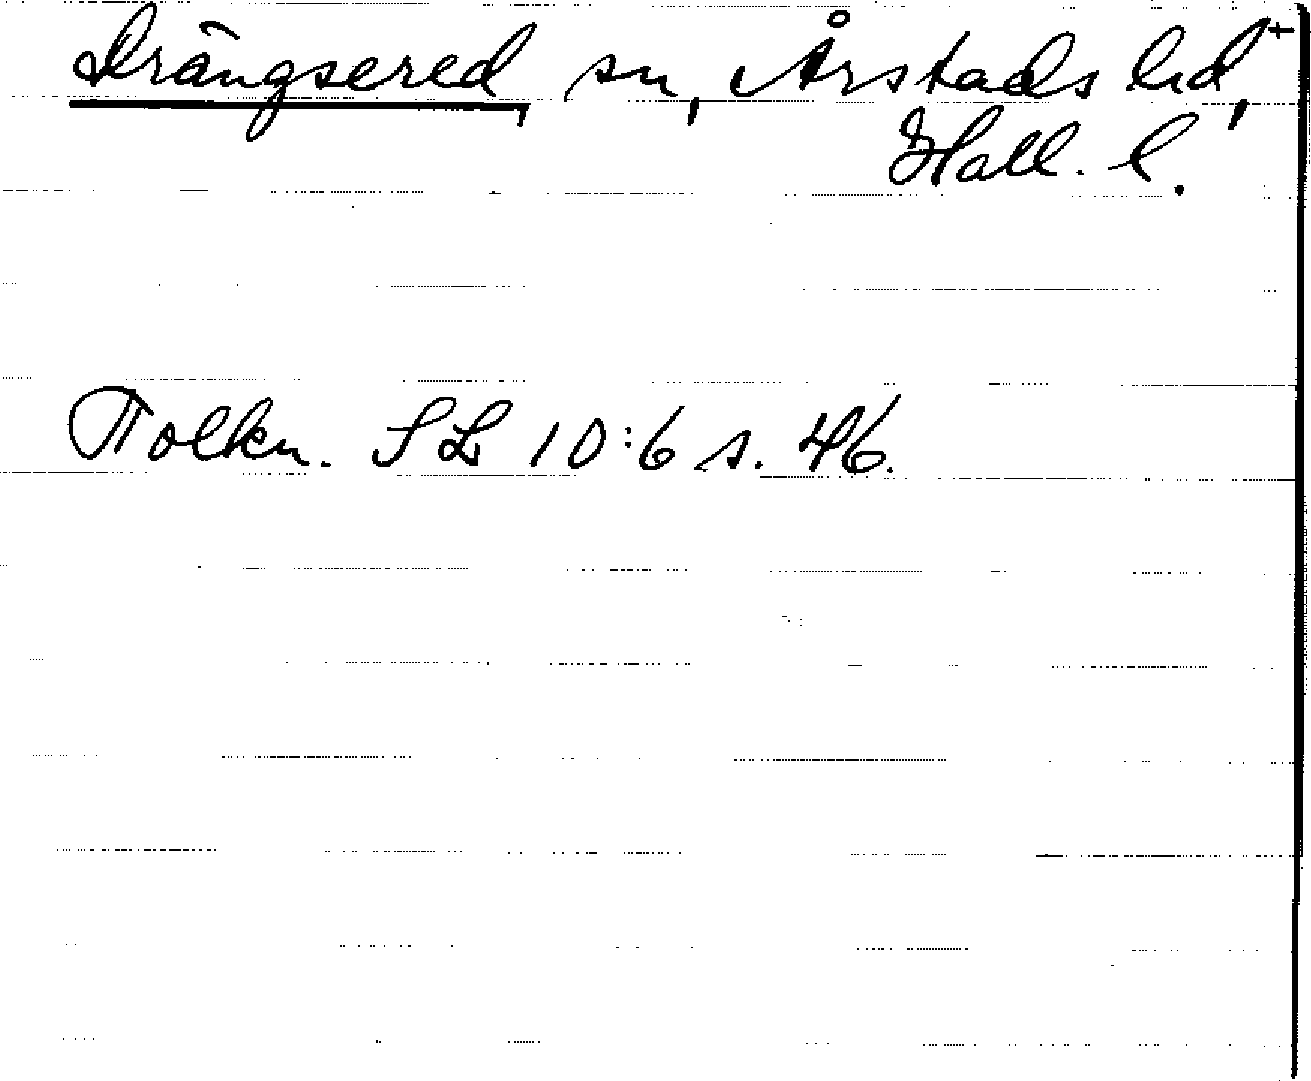 Drängsered, sn, Årstads hd, +
Hall. l.
Tolkn. SL 10:6 s. 46.